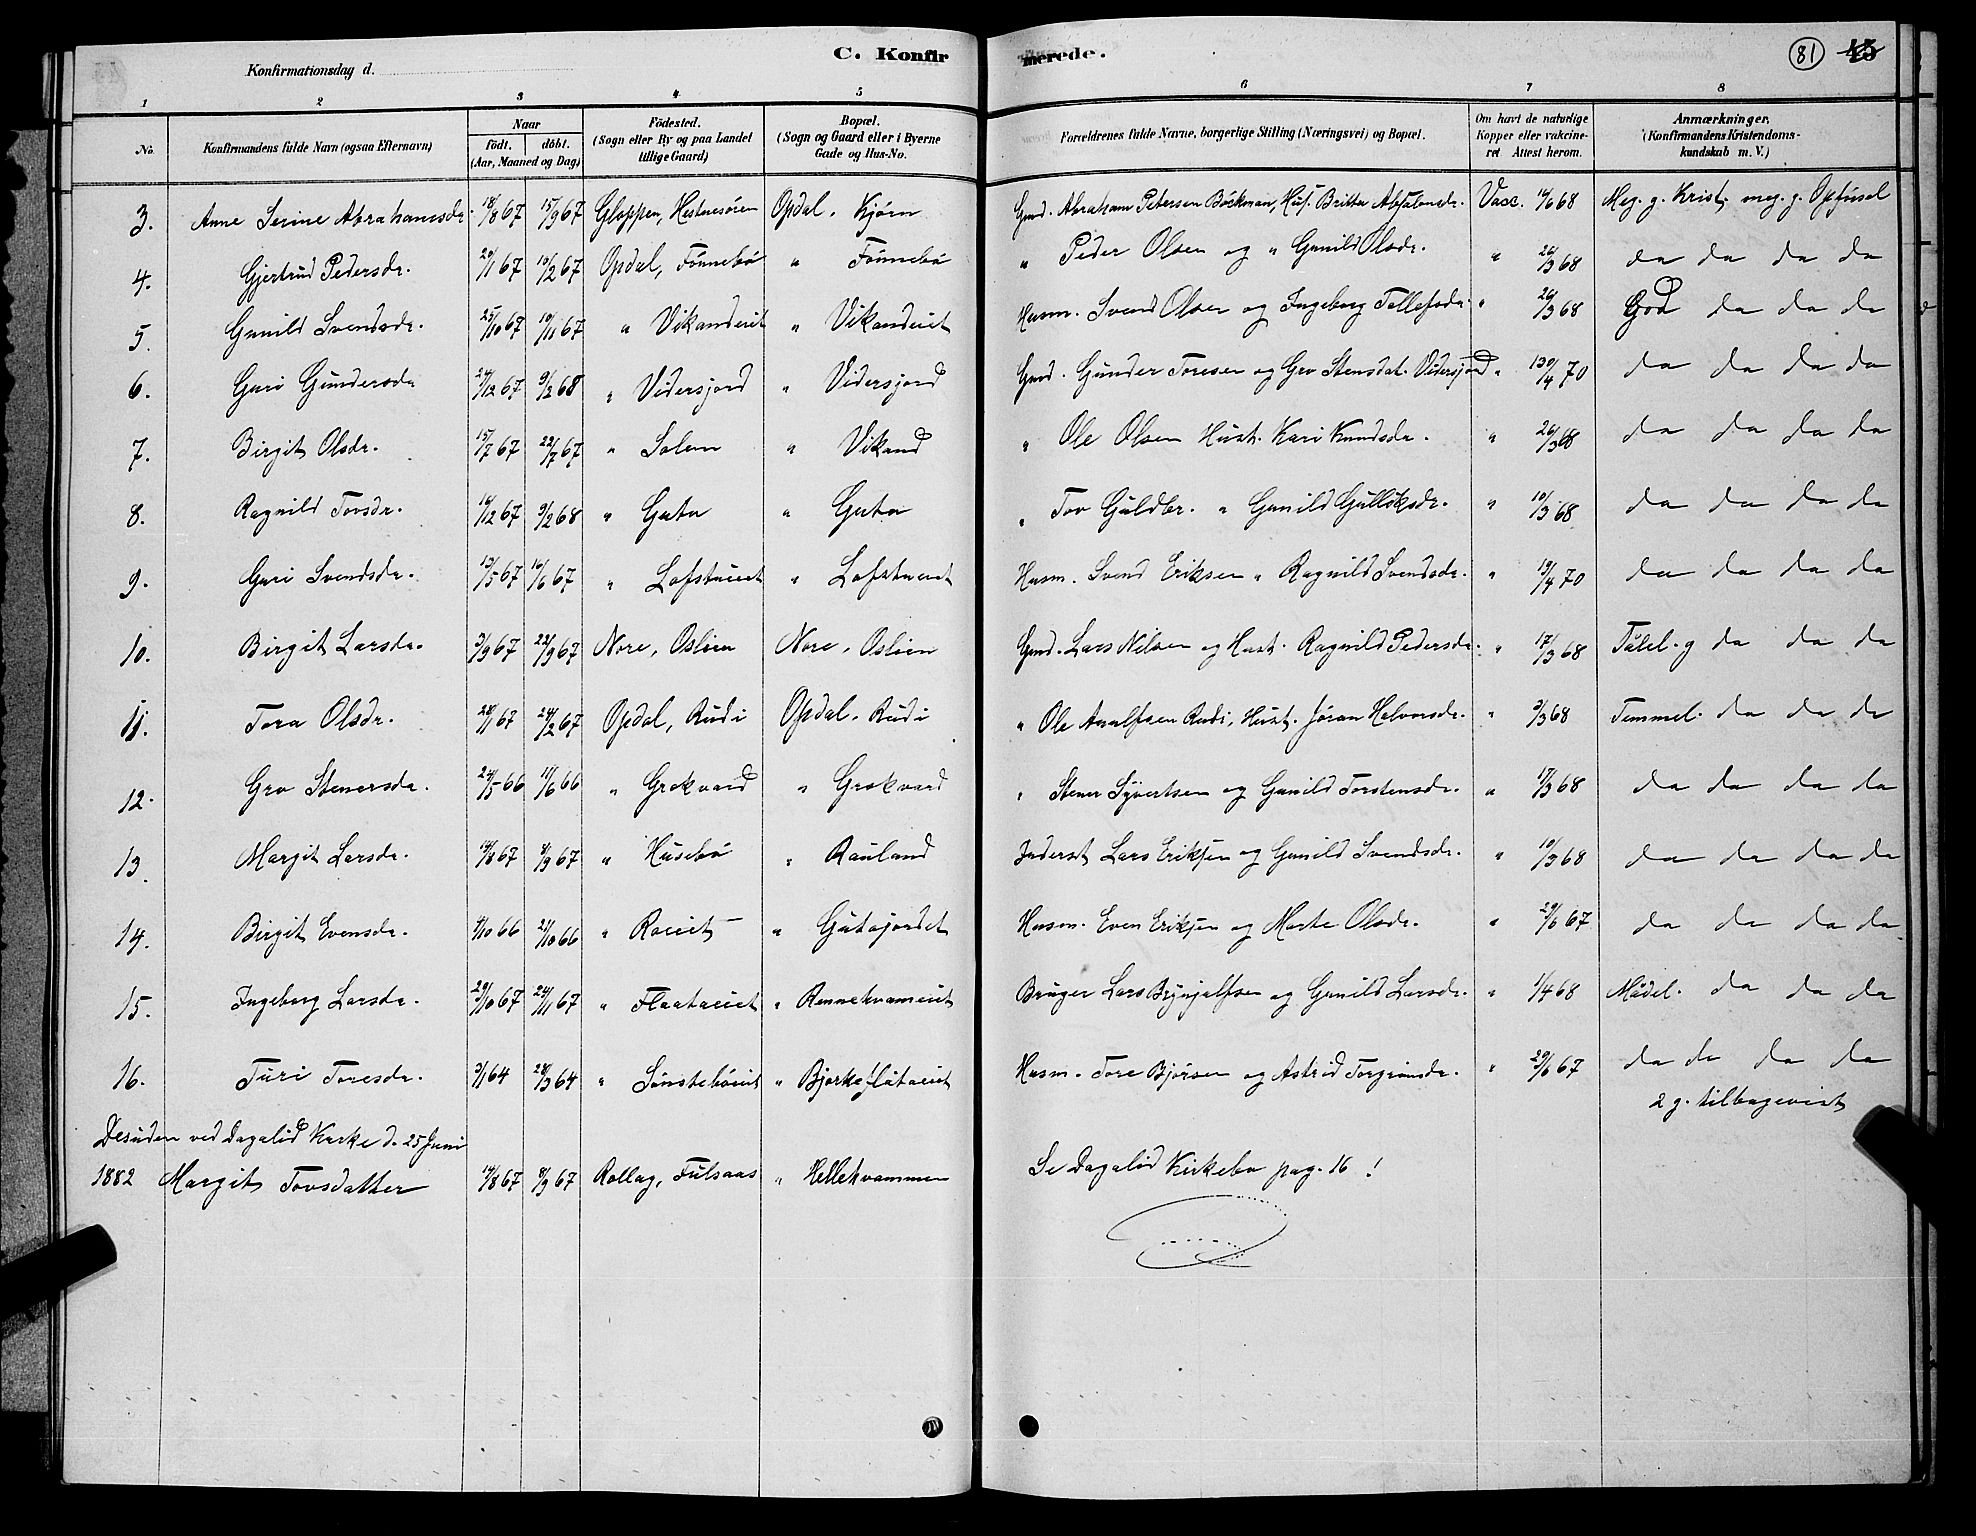 C. Konfirmerede.
81
45
Konfirmationsdag d.
1 2 3 4 5 6 7 8
No. Konfirmandens fulde Navn (ogsaa Efternavn) Naar födt. döbt. (Aar, Maaned og Dag) Födested. (Sogn eller By og paa Landet tillige Gaard) Bopæl. (Sogn og Gaard eller i Byerne Gade og Hus-No. Forældrenes fulde Navne, borgerlige Stilling (Næringsvei) og Bopæl. Om havt de naturlige Kopper eller vakcineret Attest herom. Anmærkninger, (Konfirmandens Kristendomskundskab m. V.)
3. Anne Serine Abrahamsdr. 18/8 67 15/9 67 Gloppen, Hestnesören Opdal. Kjörn Gmd. Abraham Petersen Böckman, Hus. Britta Absalonsdr. Vacc. 14/6 68 Meg. g. Krist. meg. g. Opförsel
4. Gjertrud Pedersdr. 20/1 67 10/2 67 Opdal, Fönnebö " Fönnebö " Peder Olsen og " Gunild Olsdr. " 26/3 68 da da da da
5. Gunild Svendsdr. 25/10 67 10/11 67 " Vikanderiet " Vikanderiet Husm. Svend Olsen og Ingeborg Tollefsdr. " 26/3 68 God da da da
6. Guri Gundersdr 24/12 67 9/2 68 " Vidersjord " Vidersjord Gmd. Gunder Toresen og Gro Stensdat. Vidersjord " 130/4 70 da da da da
7. Birgit Olsdr. 15/7 67 22/7 67 " Solem " Vikand " Ole Olsen Hust. Kari Knudsdr. " 26/3 68 da da da da
8. Ragnild Tovsdr. 16/12 67 9/2 68 " Guta " Guta " Tov Guldbr. " Gunild Gulliksdr. " 10/3 68 da da da da
9. Guri Svendsdr. 13/5 67 16/6 67 " Lofstueiet " Lofstueiet Husm. Svend Eriksen " Ragnild Svendsdr. " 19/4 70 da da da da
10. Birgit Larsdr. 3/9 67 22/9 67 Nore, Oslien Nore, Oslien Gmd. Lars Nilsen og Hust. Ragnild Pedersdr. " 17/3 68 Tålel. g da da da
11. Tora Olsdr. 28/1 67 24/2 67 Opdal, Rudi Opdal. Rudi " Ole Arnulfsen Rudi, Hust. Jöran Halvorsdr. " 3/3 68 Temmel. da da da
12. Gro Stenersdr. 24/5 66 11/6 66 " Grokvard " Grokvard " Stener Syvertsen og Gunild Torstensdr. " 17/3 68 da da da da
13. Margit Larsdr. 14/8 67 8/9 67 " Husebö " Rauland Inderst Lars Eriksen og Gunild Svendsdr. " 10/3 68 da da da da
14. Birgit Evensdr. 4/10 66 21/10 66 " Roeiet " Gutajordet Husm. Even Eriksen og Marte Olsdr. " 29/6 67 da da da da
15. Ingeborg Larsdr. 29/10 67 24/11 67 " Flaataeiet " Rennehvameiet Bruger Lars Brynjulfsen og Gunild Larsdr. " 1/4 68 Mådel. da da da
16. Turi Toresdr. 3/1 64 28/3 64 " Sönsteböeiet " Bjerkeflåtaeiet Husm. Tore Bjørsen og Astrid Torgrimsdr. " 29/6 67 da da da da
2 g. tilbagevist
Desuden ved Dagalid Kirke d. 25 Juni
1882 Margit Tovsdatter 14/8 67 8/9 67 Rollag, Fulsaas " Hellekvammen Se Dagalid Kirkebo pag. 16 !